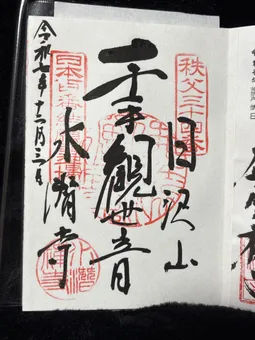 秩父三十四番
日沢山
千手観世音
日本百番
水潜寺
令和七年十二月三日